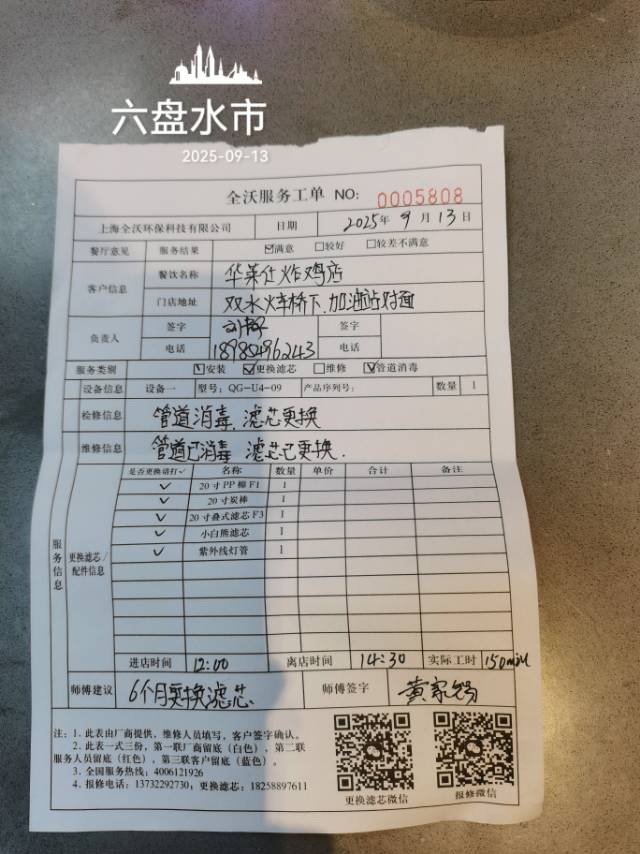 六盘水市
2025-09-13
全沃服务工单 NO: 0005808
上海全沃环保科技有限公司 日期 2025年 9月 13日
餐厅意见 服务结果 ☑满意 □较好 □较差不满意
客户信息 餐饮名称 华莱仕炸鸡店
门店地址 双水火车桥下,加油站对面
负责人 签字 签字
电话 18984896243 电话
服务类别 ☑安装 ☑更换滤芯 □维修 ☑管道消毒
设备信息 设备一 型号: QG-U4-09 产品序列号: 数量 1
检修信息 管道消毒,滤芯更换
维修信息 管道已消毒 滤芯已更换.
服务信息 更换滤芯/配件信息
是否更换请打✓ 名称 数量 单价 合计 备注
✓ 20寸PP棉F1 1
✓ 20寸炭棒 1
✓ 20寸叠式滤芯F3 1
✓ 小白熊滤芯 1
✓ 紫外线灯管 1
进店时间 12:00 离店时间 14:30 实际工时 150min
师傅建议 6个月更换滤芯 师傅签字
注: 1. 此表由厂商提供, 维修人员填写, 客户签字确认。
2. 此表一式三份, 第一联厂商留底(白色), 第二联
服务人员留底(红色), 第三联客户留底(蓝色)。
3. 全国服务热线: 4006121926
4. 报修电话: 13732292730; 更换滤芯: 18258897611
更换滤芯微信 报修微信